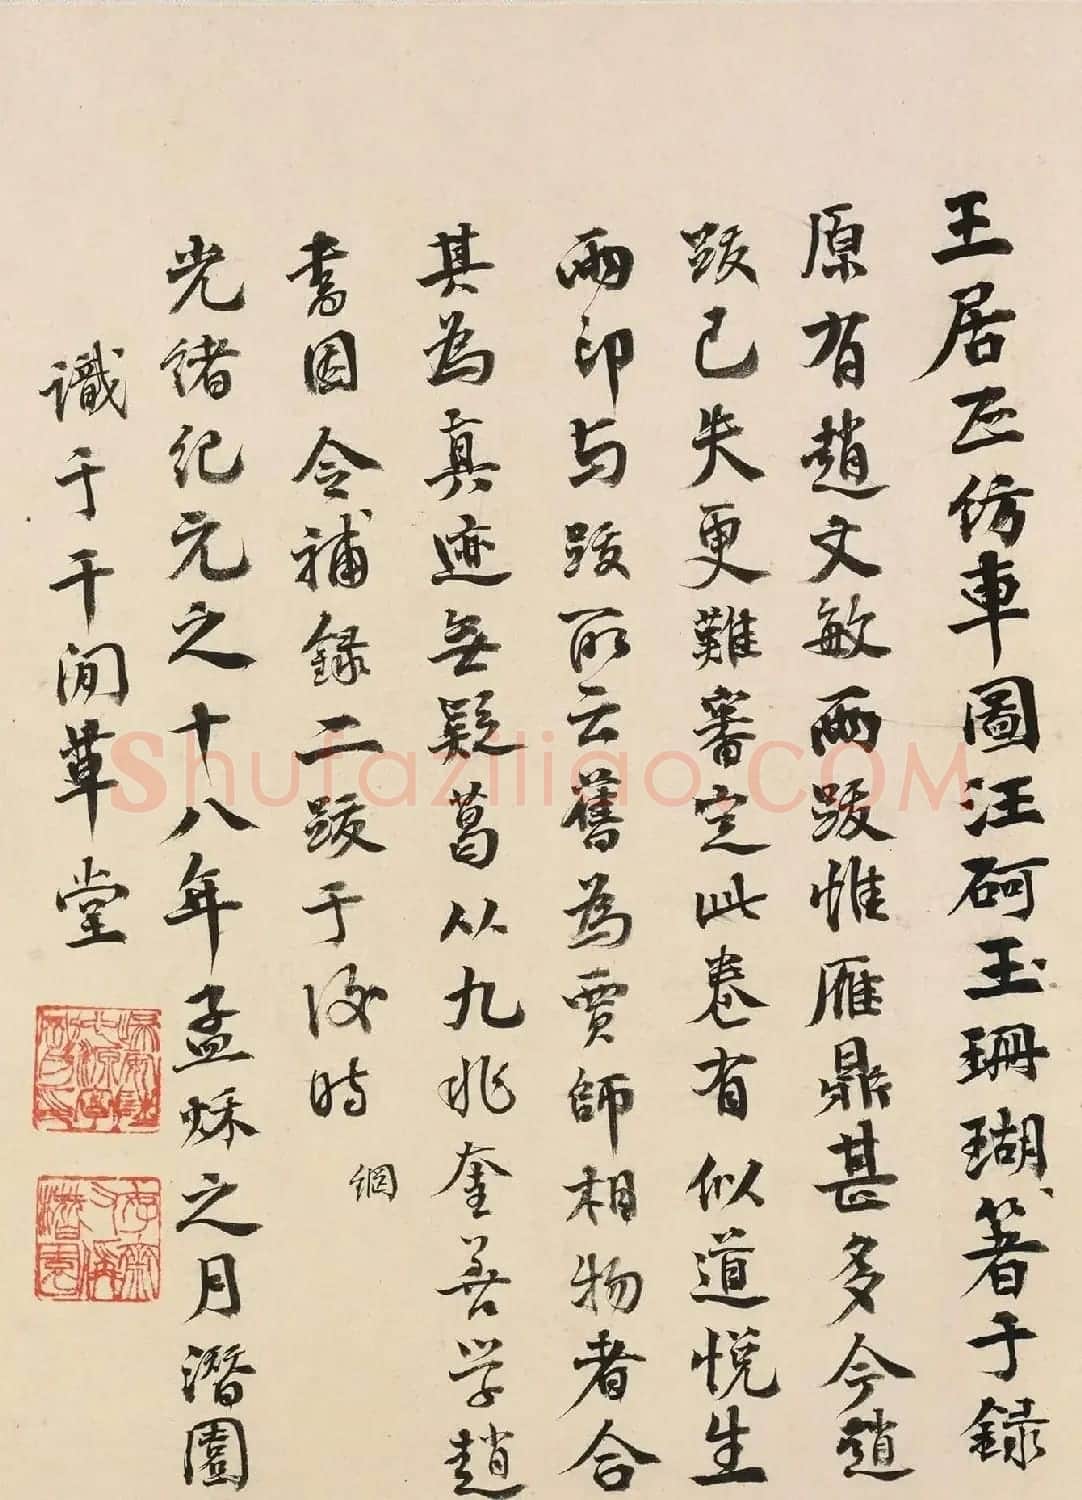 王居正仿車圖汪砢玉珊瑚箸于録
原有趙文敏兩跋惟雁鼎甚多今趙
跋已失更難審定此卷有似道悅生
兩印与跋所云舊為賈師相物者合
其為真迹無疑葛从九兆奎善学趙
書因令補録二跋于後時
網
光绪纪元之十八年孟秌之月潛園
識于千閒草堂
Shufaziliao.COM